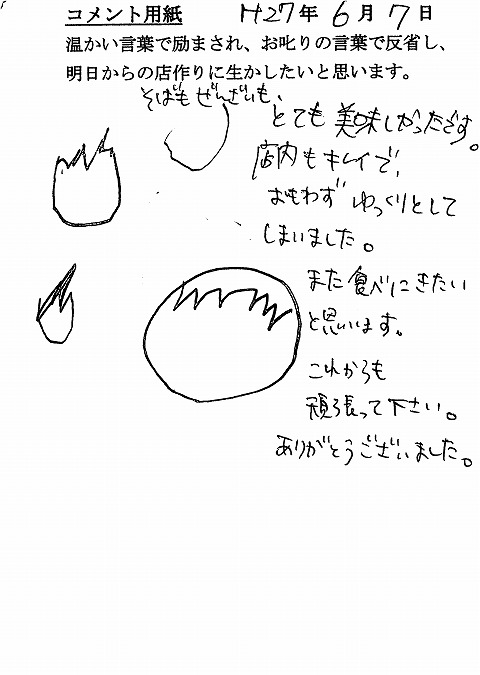 コメント用紙 H27年6月7日
温かい言葉で励まされ、お叱りの言葉で反省し、
明日からの店作りに生かしたいと思います。
そばもぜんざいも、
とても美味しかったです。
店内もキレイで、
おもわずゆっくりとして
しまいました。
また食べにきたい
と思います。
これからも
頑張って下さい。
ありがとうございました。